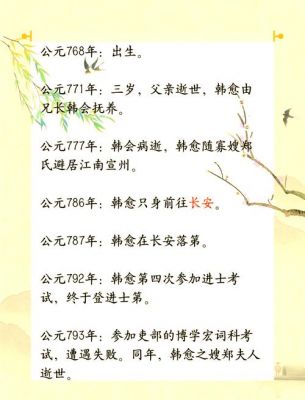 公元768年：出生。
公元771年：三岁，父亲逝世，韩愈由
兄长韩会抚养。
公元777年：韩会病逝，韩愈随寡嫂郑
氏避居江南宣州。
公元786年：韩愈只身前往长安。
公元787年：韩愈在长安落第。
公元792年：韩愈第四次参加进士考
试，终于登进士第。
公元793年：参加吏部的博学宏词科考
试，遭遇失败。同年，韩愈之嫂郑夫人
逝世。